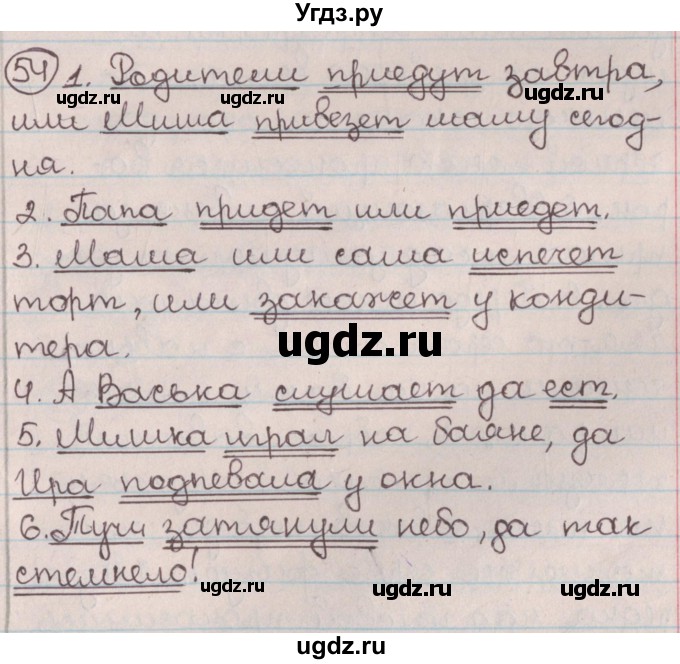 Угдз.ру
54 1. Родители приедут завтра,
ugdz.ru ugdz.ru ugdz.ru
или Миша привезет маму сегод-
ня.
2. Папа придет или приедет.
3. Маша или сама испечет
торт, или закажет у конди-
тера.
ugdz.ru
4. А Васька слушает да ест.
5. Мишка играл на баяне, да
Ира подпевала у окна.
6. Тучи затянули небо, да так
стемнело!
ugdz.ru ugdz.ru ugdz.ru
ugdz.ru